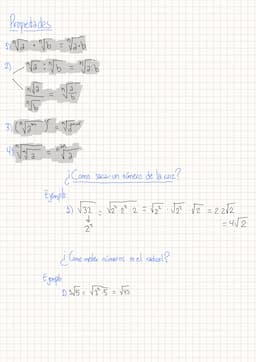 Propiedades
1) ⁿ√a · ⁿ√b = ⁿ√a·b
2) ⁿ√a : ⁿ√b = ⁿ√a:b
ⁿ√a / ⁿ√b = ⁿ√a/b
3)
4)
¿Como sacar un número de la raiz?
Ejemplo
1) √32 = √2²·2²·2 = √2² · √2² · √2 = 2·2√2
↓
2⁵
= 4√2
¿Como meter números en el radical?
Ejemplo
1) 3√5 = √3²·5 = √45